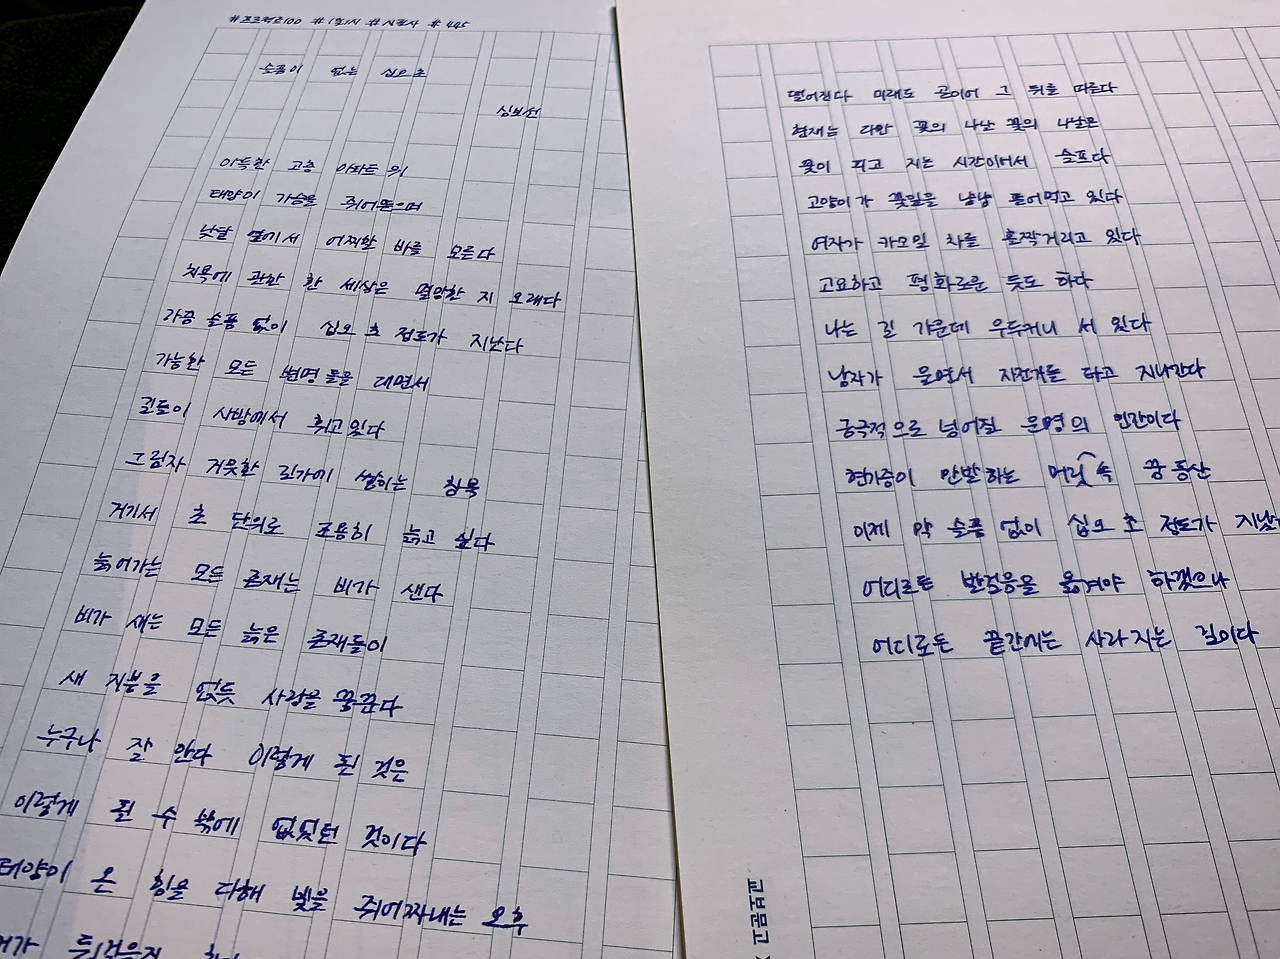 #프로젝트100 #1일1시 #시필사 #445
슬픔이 없는 십오 초
심보선
아득한 고층 아파트 위
태양이 가슴을 쥐어뜯으며
낮달 옆에서 어찌할 바를 모른다
치욕에 관한 한 세상은 멸망한 지 오래다
가끔 슬픔 없이 십오 초 정도가 지난다
가능한 모든 변명들을 대면서
길들이 사방에서 휘고 있다
그림자 거뭇한 길가에 쌓이는 침묵
거기서 초 단위로 조용히 늙고 싶다
늙어가는 모든 존재는 비가 샌다
비가 새는 모든 늙은 존재들이
새 지붕을 얹듯 사랑을 꿈꾼다
누구나 잘 안다 이렇게 된 것은
이렇게 될 수 밖에 없었던 것이다
태양이 온 힘을 다해 빛을 쥐어짜내는 오후
떨어진다 미래도 곧이어 그 뒤를 따른다
현재는 다만 꽃의 나날 꽃의 나날은
꽃이 피고 지는 시간이어서 슬프다
고양이가 꽃잎을 냠냠 뜯어먹고 있다
여자가 카모밀 차를 홀짝거리고 있다
고요하고 평화로운 듯도 하다
나는 길 가운데 우두커니 서 있다
남자가 울면서 자전거를 타고 지나간다
궁극적으로 넘어질 운명의 인간이다
현기증이 만발하는 머릿속 꿈 동산
이제 막 슬픔 없이 십오 초 정도가 지났
어디로든 발걸음을 옮겨야 하겠으나
어디로든 끝간에는 사라지는 길이다